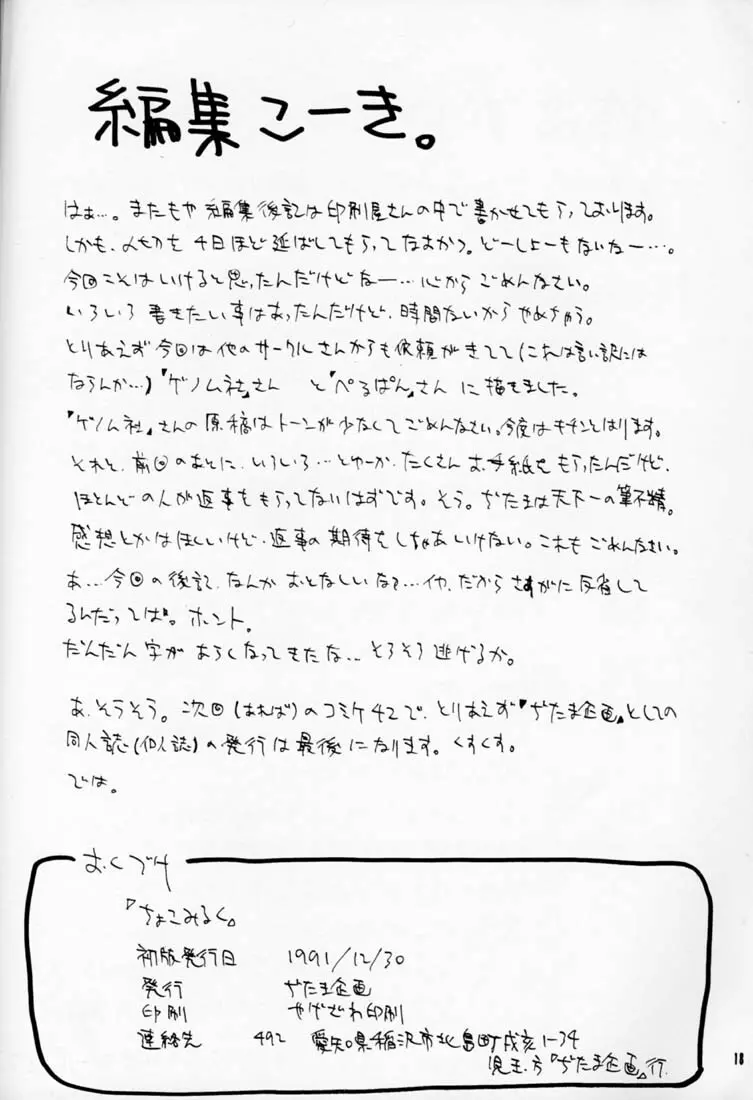 編集こーき。
はぁ…。またもや編集後記は印刷屋さんの中で書かせてもらっております。
しかも、〆切を4日ほど延ばしてもらってなおかつ。どーしよーもないなー…。
今回こそはいけると思ったんだけどなー…心からごめんなさい。
いろいろ書きたい事はあったんだけど、時間ないからやめちゃう。
とりあえず今回は他のサークルさんからも依頼がきてて(これは言い訳には
ならんか…)『ゲノム社』さんと『ぺるぱん』さんに描きました。
『ゲノム社』さんの原稿はトーンが少なくてごめんなさい。今度はキチンとはります。
それと、前回のあとに、いろいろ…とゆーか、たくさんお手紙をもらったんだけど、
ほとんどの人が返事をもらってないはずです。そう。ぢたまは天下一の筆不精。
感想とかはほしいけど、返事の期待をしちゃあいけない。これもごめんなさい。
あ…今回の後記、なんかおとなしいなぁ…イヤ、だからさすがに反省して
るんだってば。ホント。
だんだん字があらくなってきたな…そろそろ逃げるか。
あ、そうそう。次回(あれば)のコミケ42で、とりあえず『ぢたま企画』としての
同人誌(個人誌)の発行は最後になります。くすくす。
では。
おくづけ
『ちょこみるく』
初版発行日 1991/12/30
発行 ぢたま企画
印刷 やげざわ印刷
連絡先 492 愛知県稲沢市北島町戌亥1-34
児玉方『ぢたま企画』行
18